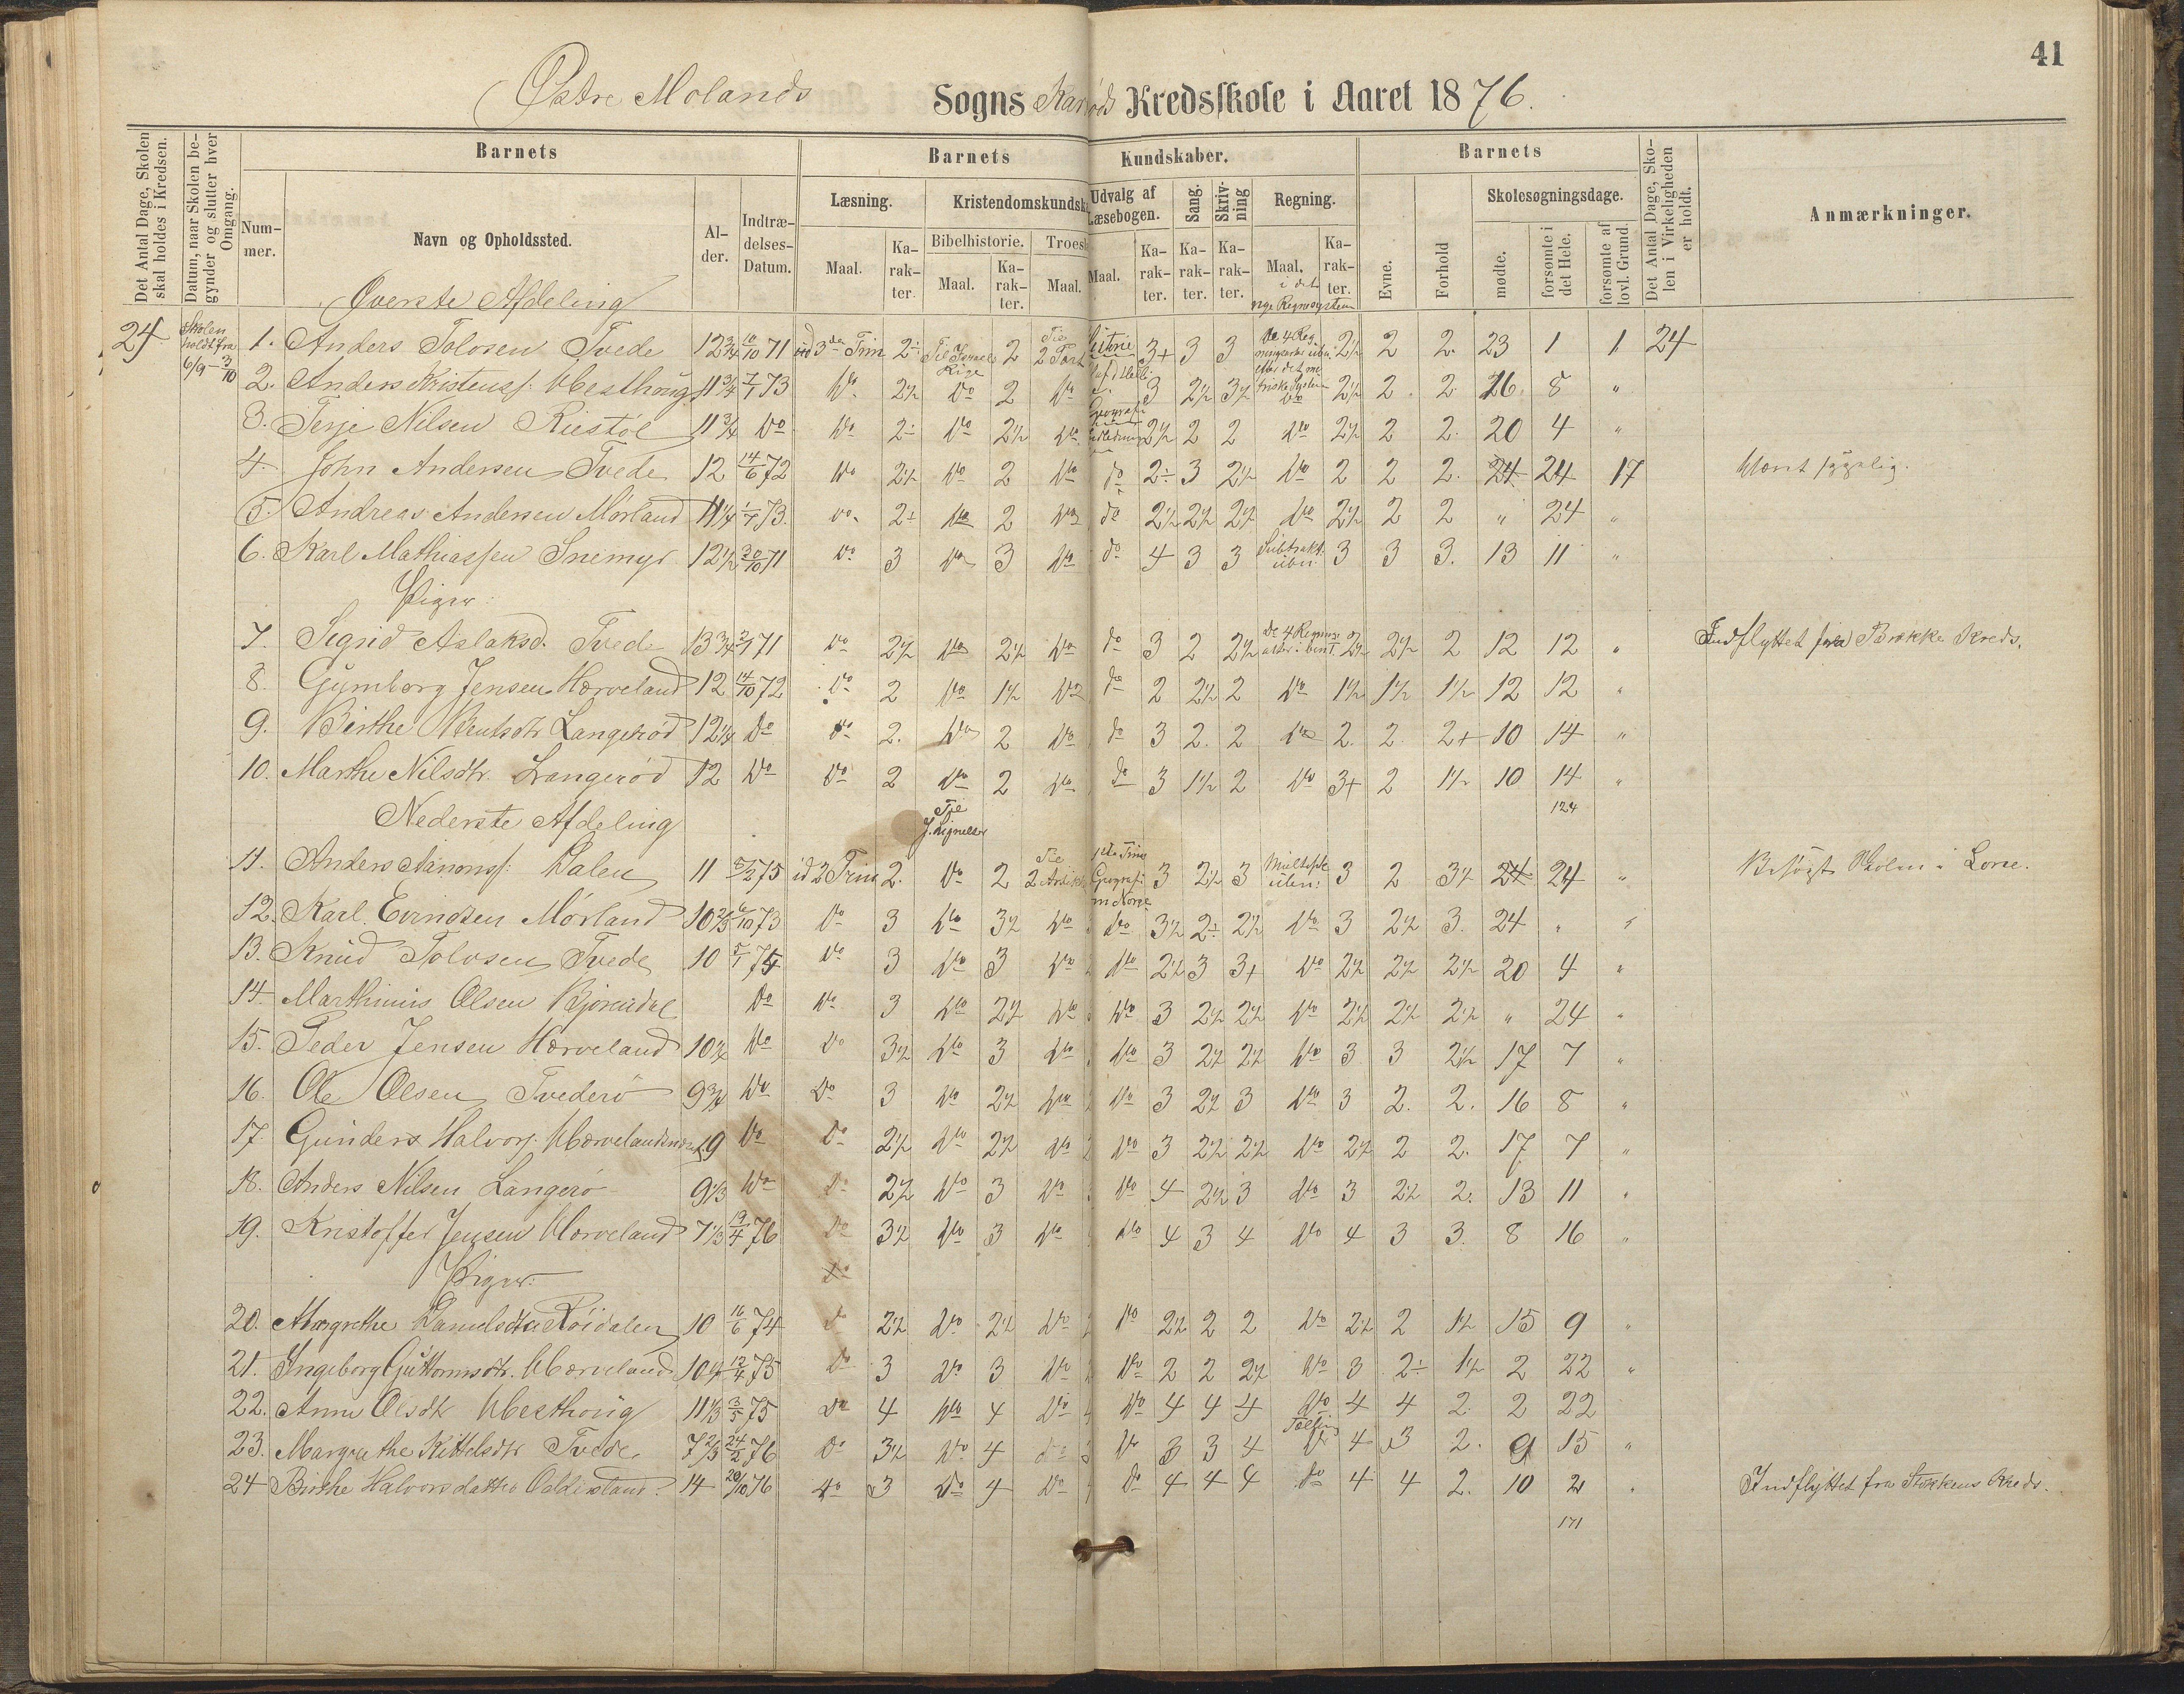 41
Østre Molands Sogns Kredsskole i Aaret 1876.
Det Antal Dage, Skolen skal holdes i Kredsen.
Datum, naar Skolen begynder og slutter hver Omgang.
Barnets
Nummer.
Navn og Opholdssted.
Alder.
Indtrædelses-Datum.
Barnets Kundskaber.
Læsning.
Maal.
Karakter.
Kristendomskundsk
Bibelhistorie.
Maal.
Karakter.
Troesl
Maal.
Udvalg af Læsebogen.
Maal.
Karakter.
Sang.
Karakter.
Skrivning
Karakter.
Regning.
Maal.
Karakter.
i det nye Regnesystem
Barnets
Evne.
Forhold
Skolesøgningsdage.
mødte.
forsømte i det Hele.
forsømte af lovl. Grund.
Det Antal Dage, Skolen i Virkeligheden er holdt.
Anmærkninger.
Øverste Afdeling
24 Skolen holdt fra 6/9 - 3/10
1. Anders Tolosen Tvede 12 3/4 10/10 71 3die Trin 2 Til Israels Rige 2 Til 2 Part 3+ 3 3 2 1/2 2 2. 23 1 1 24
2. Anders Kristenss: 11 3/4 7/7 73 Do 2 1/2 Do 2 Do 3 2 1/2 3 1/2 Do 2 1/2 2 2 16 8 "
3. Terje Nilsen Riestøl 11 3/4 Do Do 2 Do 2 1/2 Do 2 1/2 2 2 Do 2 1/2 2 2. 20 4 "
4. John Andersen Tvede 12 14/6 72 Do 2 1/2 Do 2 Do do 2÷ 3 2 1/2 Do 2 2 2. 24 24 17 Været sygelig.
5. Andreas Andersen Mørland 11 1/4 73. Do 2÷ Do 2 Do do 2 1/2 2 1/2 2 1/2 Do 2 1/2 2 2 " 24 "
6. Karl Mathiassen Snemyr 12 1/2 30/10 71 Do 3 Do 3 Do do 4 3 3 Subtrakt. uben. 3 3 3. 13 11 "
Piger:
7. Sigrid Aslaksd. Tvede 13 3/4 71 Do 2 1/2 Do 2 1/2 Do do 3 2 2 1/2 2 1/2 2 1/2 2 12 12 " Indflyttet fra Brække Kreds.
8. Gumborg Jensen Hørveland 12 14/10 72 Do 2 Do 1 1/2 Do do 2 2 1/2 2 Do 1 1/2 1 1/2 1 1/2 12 12 "
9. Birthe Langerød 12 1/4 Do Do 2. Do 2 Do do 3 2. 2 Do 2. 2 2+ 10 14 "
10. Marthe Nilsdtr. Langerød 12 Do Do 2 Do 2 Do do 3 1 1/2 2 Do 3+ 2 1 1/2 10 14 "
124
Nederste Afdeling
11. Anders Dalen 11 5/2 75 2 Trin 2. Do 2 Til 2 Artikel Geografi 3 2 1/2 3 Multipl. uben: 3 2 3 1/2 24 24 " Besøgt Skolen i Lone.
12. Karl Evindsen Mørland 10 2/3 6/10 73 Do 3 Do 3 1/2 Do Do 3 1/2 2÷ 2 1/2 Do 3 2 1/2 3. 24 "
13. Knud Tolosen Tvede 10 5/1 74 Do 3 Do 3 Do Do 2 1/2 3 3+ Do 2 1/2 2 1/2 2 1/2 20 4 "
14. Marthinius Olsen Bjorendal Do Do 3 Do 2 1/2 Do Do 3 2 1/2 2 1/2 Do 2 1/2 2 1/2 2 1/2 " 24 "
15. Peder Jensen Hørveland 10 1/4 Do Do 3 1/2 Do 3 Do Do 3 2 1/2 2 1/2 Do 3 3 2 1/2 17 7 "
16. Ole Olsen Tvederø 9 3/4 Do Do 3 Do 2 1/2 Do Do 3 2 1/2 3 Do 3 2. 2. 16 8 "
17. Gunders Halvors: 9 Do Do 2 1/2 Do 2 1/2 Do Do 3 2 1/2 2 1/2 Do 2 1/2 2 2. 17 7 "
18. Anders Nilsen Langerø 9 1/3 Do Do 2 1/2 Do 3 Do Do 4 2 1/2 3 Do 3 2 1/2 2. 13 11 "
19. Kristoffer Jensen Hørveland 7 1/3 19/4 76 Do 3 1/2 Do 3 Do Do 4 3 4 Do 4 3 3. 8 16 "
Piger:
20. Margrethe Danielsdtr Røidalen 10 16/6 74 Do 2 1/2 Do 2 1/2 Do Do 2 1/2 2 2 Do 2 1/2 2 1 1/2 15 9 "
21. Ingeborg Guttormsdtr. Hørveland 10 1/4 12/4 75 Do 3 Do 3 Do Do 2 2 2 1/2 Do 3 2÷ 1 1/2 2 22 "
22. Anne Olsdtr 11 1/3 3/5 75 Do 4 Do 4 Do Do 4 4 4 Do 4 4 2 2 22
23. Margrethe Kittelsdtr Tvede. 7 2/3 24/2 76 Do 3 1/2 Do 4 Do Do 3 3 4 4 3 2. 9 15 "
24 Birthe Halvorsdatter 14 20/10 76 Do 3 Do 4 Do Do 4 4 4 Do 4 4 2. 10 2 " Indflyttet fra Stokkens Kreds.
171